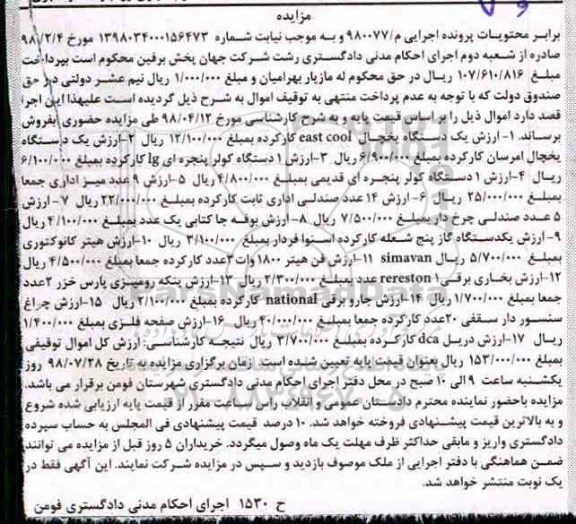 مزایده
برابر محتویات پرونده اجرایی م/۹۸۰۰۷۷ و به موجب نیابت شماره ۱۳۹۸۰۳۴۰۰۰۱۵۶۴۷۳ مورخ ۹۸/۲/۴
صادره از شعبه دوم اجرای احکام مدنی دادگستری رشت شرکت جهان پخش برفین محکوم است بپرداخت
مبلغ ۱۰۷/۶۱۰/۸۱۶ ریال در حق محکوم له مازیار بهرامیان و مبلغ ۱/۰۰۰/۰۰۰ ریال نیم عشر دولتی در حق
صندوق دولت که با توجه به عدم پرداخت منتهی به توقیف اموال به شرح ذیل گردیده است علیهذا این اجرا
قصد دارد اموال ذیل را بر اساس قیمت پایه و به شرح کارشناسی مورخ ۹۸/۰۴/۱۲ طی مزایده حضوری بفروش
برساند. ۱-ارزش یک دستگاه یخچال east cool کارکرده بمبلغ ۱۲/۱۰۰/۰۰۰ ریال ۲-ارزش یک دستگاه
یخچال امرسان کارکرده بمبلغ ۶/۹۰۰/۰۰۰ ریال ۳-ارزش ۱ دستگاه کولر پنجره ای lg کارکرده بمبلغ ۶/۱۰۰/۰۰۰
ریال ۴-ارزش ۱ دستگاه کولر پنجره ای قدیمی بمبلغ ۴/۸۰۰/۰۰۰ ریال ۵-ارزش ۹ عدد میز اداری جمعا
بمبلغ ۲۵/۰۰۰/۰۰۰ ریال ۶- ارزش ۱۴ عدد صندلی اداری ثابت کارکرده بمبلغ ۲۲/۰۰۰/۰۰۰ ریال ۷- ارزش
۵ عدد صندلی چرخ دار بمبلغ ۷/۵۰۰/۰۰۰ ریال ۸- ارزش بوفه جا کتابی یک عدد بمبلغ ۴/۱۰۰/۰۰۰ ریال
۹- ارزش یکدستگاه گاز پنج شعله کارکرده اسنوا فردار بمبلغ ۳/۱۰۰/۰۰۰ ریال ۱۰-ارزش هیتر کانوکتوری
بمبلغ ۵/۷۰۰/۰۰۰ ریال simavan ۱۱-ارزش فن هیتر ۱۸۰۰ وات ۳ عدد کارکرده جمعا بمبلغ ۴/۵۰۰/۰۰۰ ریال
۱۲-ارزش بخاری برقی rereston ۱ عدد بمبلغ ۲/۳۰۰/۰۰۰ ریال ۱۳-ارزش پنکه رومیزی پارس خزر ۲ عدد
جمعا بمبلغ ۱/۷۰۰/۰۰۰ ریال ۱۴- ارزش جارو برقی national کارکرده بمبلغ ۲/۱۰۰/۰۰۰ ریال ۱۵- ارزش چراغ
سنسور دار سقفی ۲۰ عدد کارکرده جمعا بمبلغ ۴۰/۰۰۰/۰۰۰ ریال ۱۶-ارزش صفحه فلزی بمبلغ ۱/۴۰۰/۰۰۰
ریال ۱۷-ارزش دریل dca کارکرده بمبلغ ۳/۷۰۰/۰۰۰ ریال نتیجه کارشناسی: ارزش کل اموال توقیفی
بمبلغ ۱۵۳/۰۰۰/۰۰۰ ریال بعنوان قیمت پایه تعیین شده است زمان برگزاری مزایده به تاریخ ۹۸/۰۷/۲۸ روز
یکشنبه ساعت ۹ الی ۱۰ صبح در محل دفتر اجرای احکام مدنی دادگستری شهرستان فومن برقرار می باشد.
مزایده باحضور نماینده محترم دادستان عمومی و انقلاب راس ساعت مقرر از قیمت پایه ارزیابی شده شروع
و به بالاترین قیمت پیشنهادی فروخته خواهد شد. ۱۰ درصد قیمت پیشنهادی فی المجلس به حساب سپرده
دادگستری واریز و مابقی حداکثر ظرف مهلت یک ماه وصول میگردد. خریداران ۵ روز قبل از مزایده می توانند
ضمن هماهنگی با دفتر اجرایی از ملک موصوف بازدید و سپس در مزایده شرکت نمایند. این آگهی فقط در
یک نوبت منتشر خواهد شد.
ح ۱۵۳۰ اجرای احکام مدنی دادگستری فومن